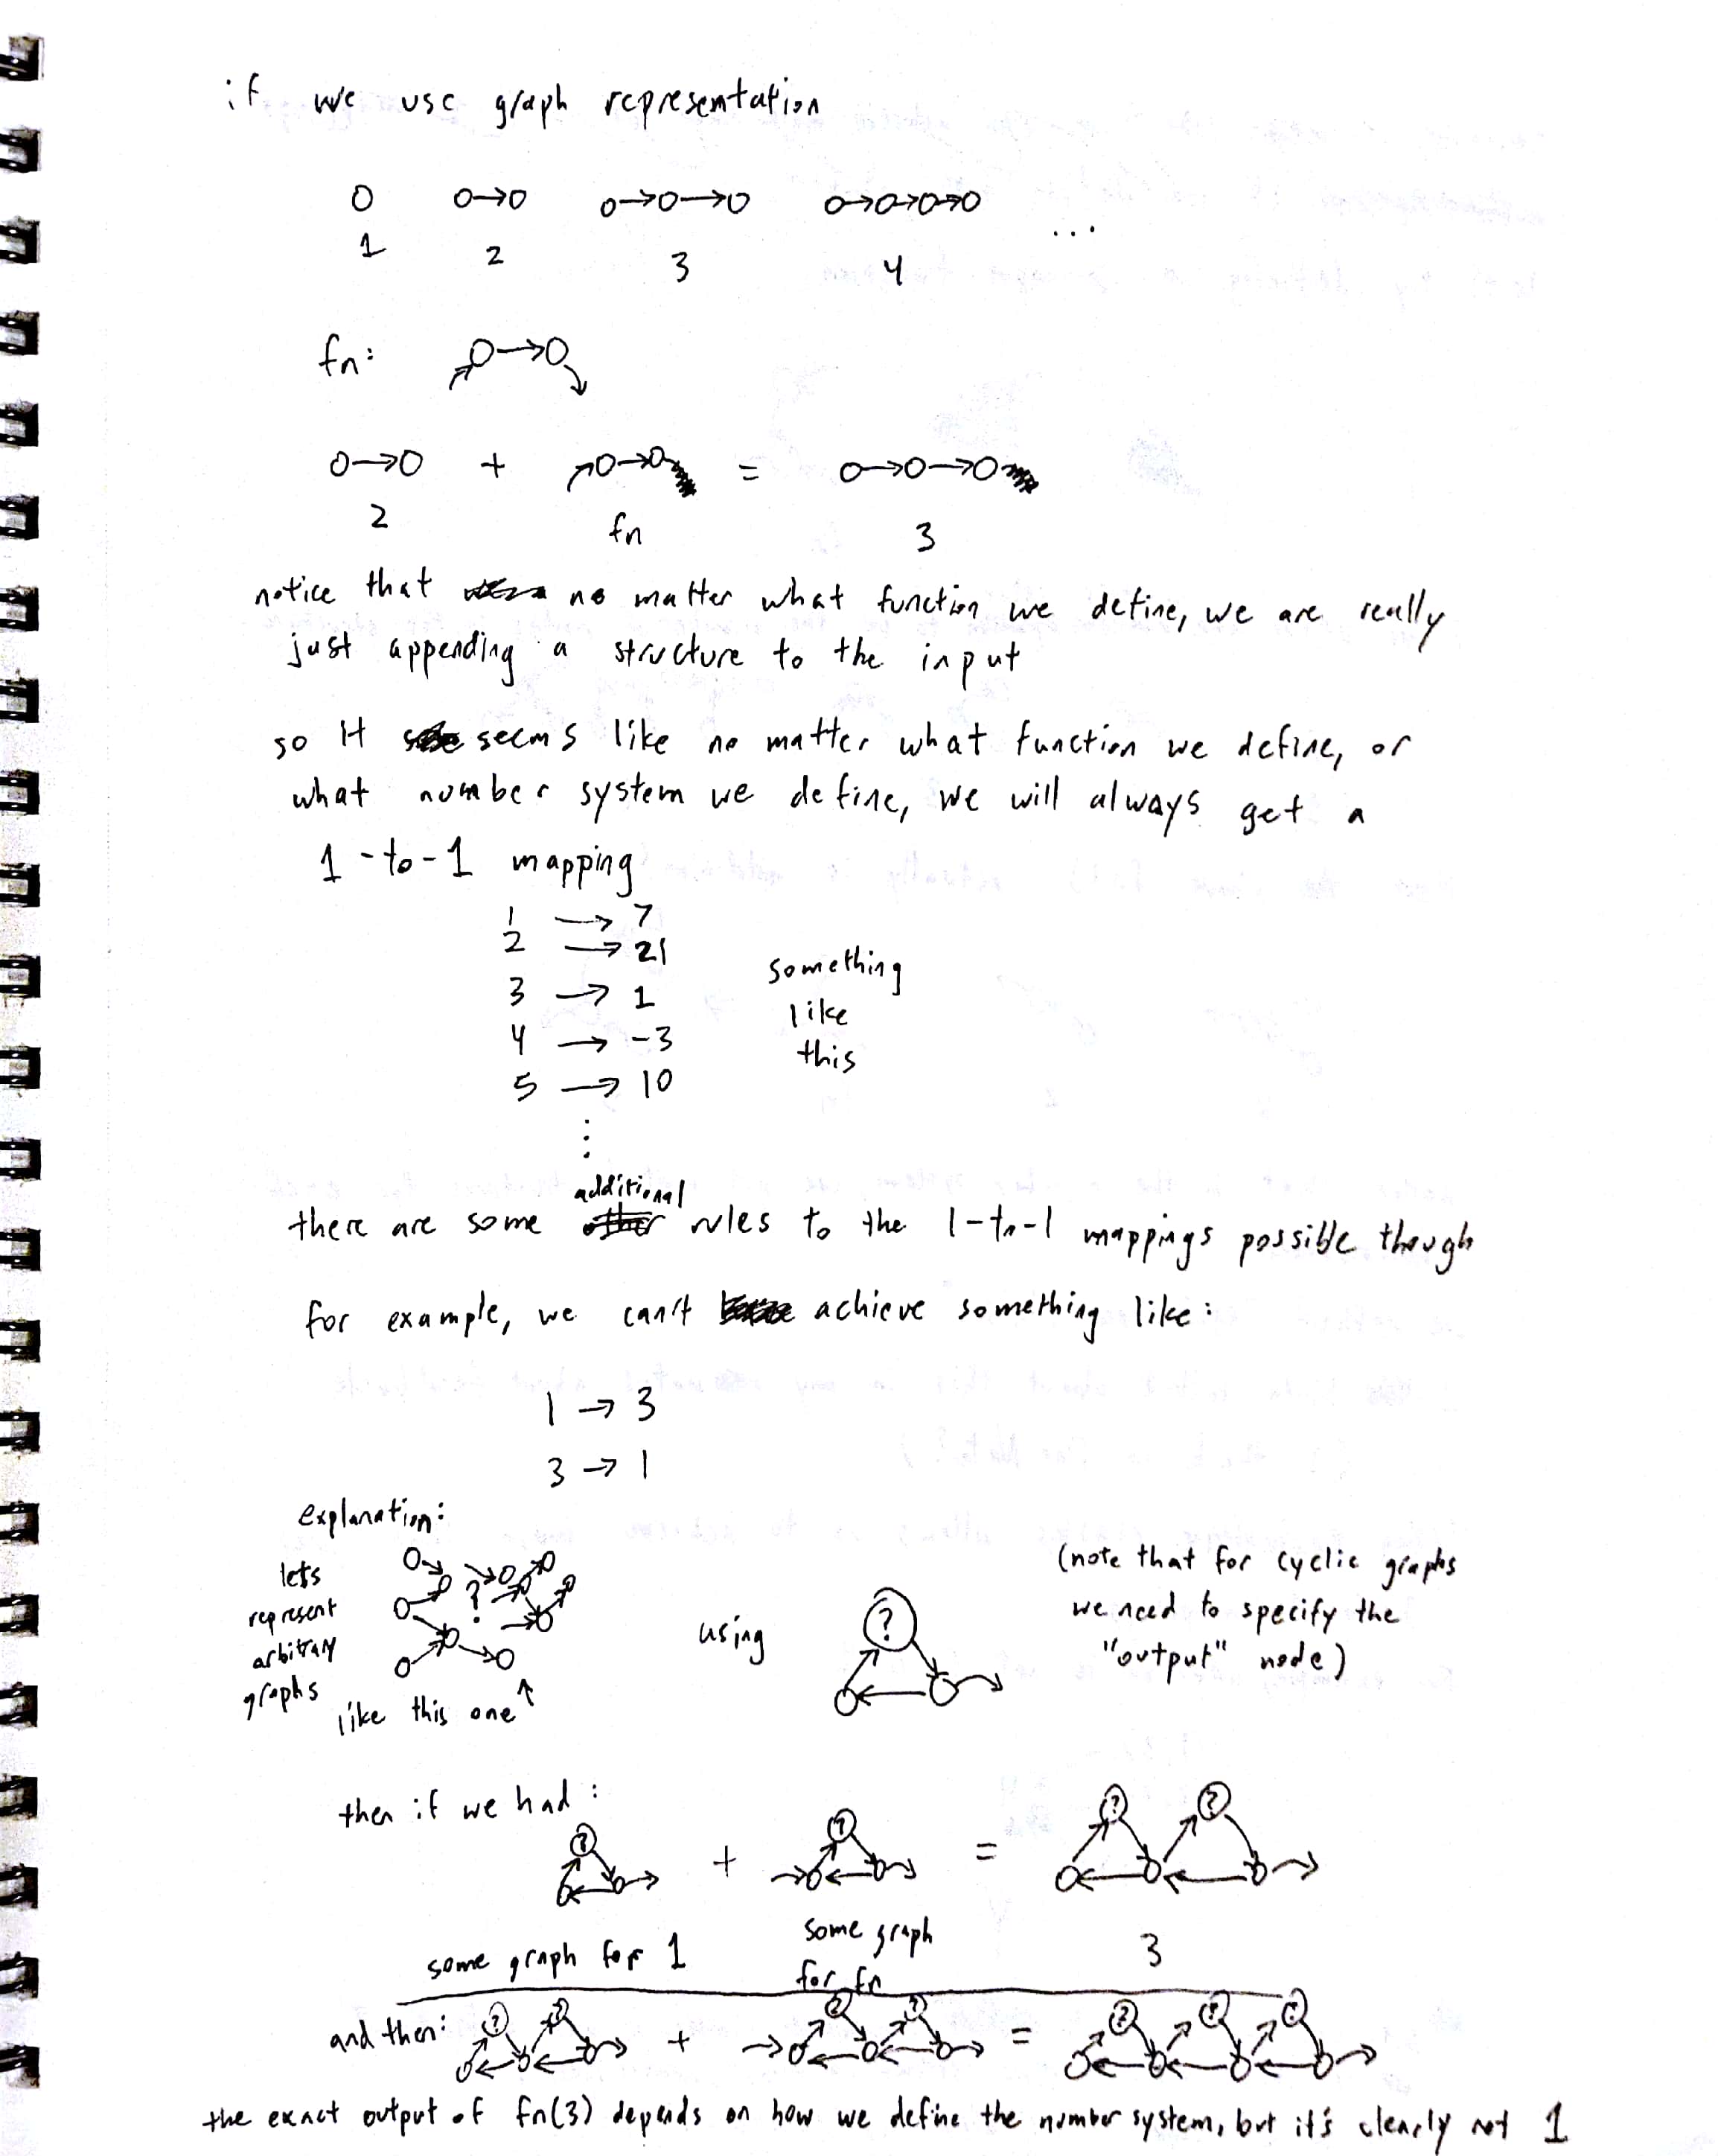 if we use graph representation
1 2 3 4 ...
fn:
+ =
2 fn 3
notice that no matter what function we define, we are really
just appending a structure to the input
so it seems like no matter what function we define, or
what number system we define, we will always get a
1-to-1 mapping
1 → 7
2 → 21
3 → 1
4 → -3
5 → 10
⋮
something
like
this
there are some additional rules to the 1-to-1 mappings possible though
for example, we can't achieve something like:
1 → 3
3 → 1
explanation:
lets
represent
arbitrary
graphs
?
like this one ↑
using
?
(note that for cyclic graphs
we need to specify the
"output" node)
then if we had:
? + ? = ? ?
some graph for 1
some graph
for fn
3
and then: ? ? + ? ? = ? ? ?
the exact output of fn(3) depends on how we define the number system, but it's clearly not 1